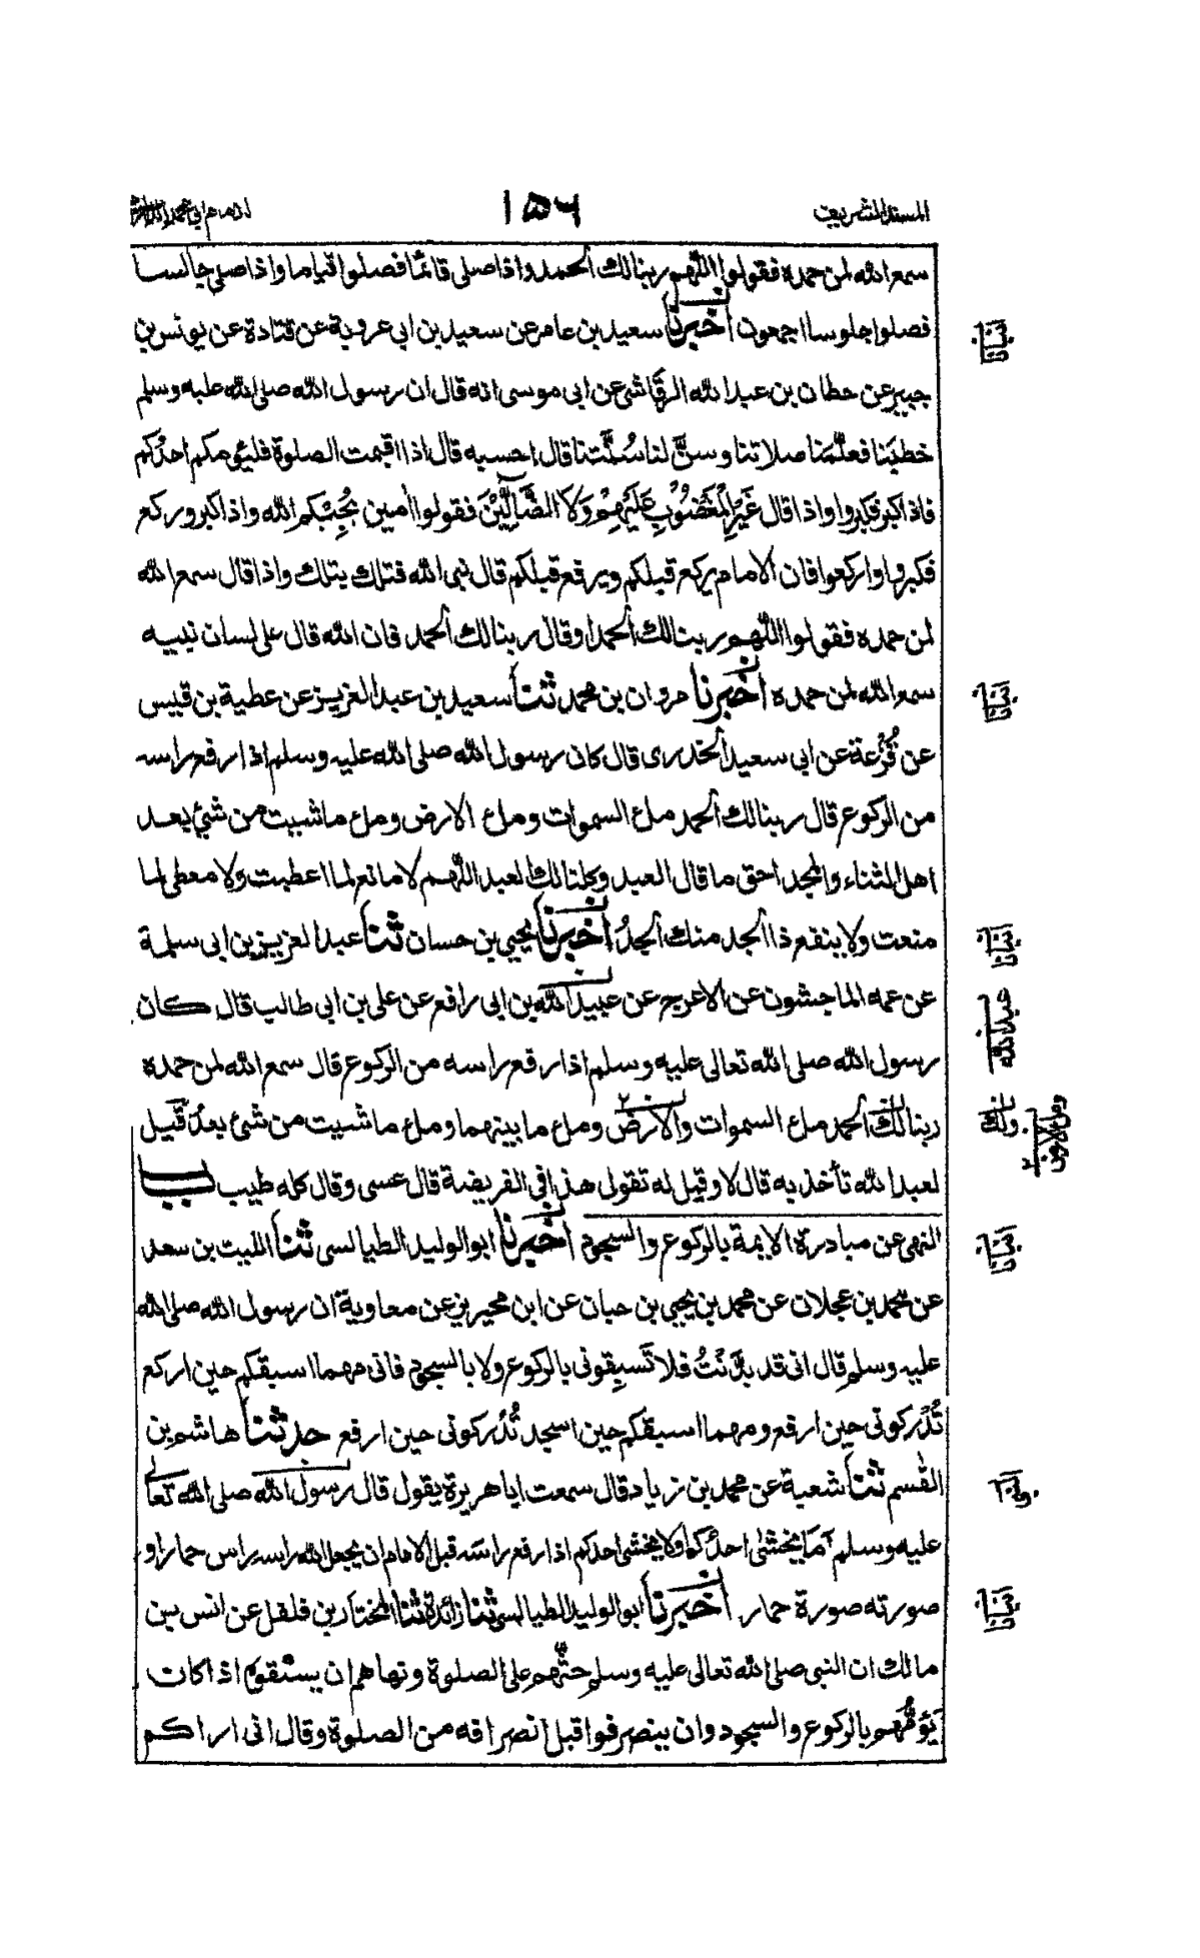 المسند الشريف
١٥٦
للامام ابي محمد الدارمي
سمع الله لمن حمده فقولوا اللّٰهم ربنا لك الحمد واذا صلى قائمًا فصلوا قياما واذا صلى جالسا
فصلوا جلوسا اجمعون اخبرنا سعيد بن عامر عن سعيد بن ابي عروبة عن قتادة عن يونس بن
انبانا
جبير عن حطان بن عبد الله الرقاشى عن ابي موسى انه قال ان رسول الله صلى الله عليه وسلم
خطبَنا فعلّمَنا صلاتنا وسنَّ لنا سُنَّتنا قال احسبه قال اذا اقيمت الصلوة فليؤمكم احدُكم
فاذا كبر فكبروا واذا قال غَيْرِ الْمَغْضُوْبِ عَلَيْهِمْ وَلَا الضَّآلِّيْنَ فقولوا اٰمين يُجِبْكم الله واذا كبر وركع
فكبروا واركعوا فان الامام يركع قبلكم ويرفع قبلكم قال نبى الله فتلك بتلك واذا قال سمع الله
لمن حمده فقولوا اللّٰهم ربنا لك الحمد او قال ربنا لك الحمد فان الله قال على لسان نبيه
سمع الله لمن حمده اخبرنا مروان بن محمد ثنا سعيد بن عبد العزيز عن عطية بن قيس
انبانا
عن قُزعة عن ابي سعيد الخدرى قال كان رسول الله صلى الله عليه وسلم اذا رفع راسه
من الركوع قال ربنا لك الحمد ملء السموات وملء الارض وملء ما شيت من شئ بعد
اهل الثناء والمجد احق ما قال العبد وكلنا لك عبد اللّٰهم لا مانع لما اعطيت ولا معطى لما
منعت ولا ينفع ذا الجد منك الجدُّ اخبرنا يحيى بن حسان ثنا عبد العزيز بن ابي سلمة
انبانا
عن عمه الماجشون عن الاعرج عن عبيد الله بن ابي رافع عن على بن ابي طالب قال كان
عبد الله
رسول الله صلى الله تعالى عليه وسلم اذا رفع راسه من الركوع قال سمع الله لمن حمده
ربنا لك الحمد ملء السموات والارض وملء ما بينهما وملء ما شيت من شئ بعدُ قيل
ولك
وملء الارض
لعبد الله تأخذ به قال لا وقيل له تقول هذا فى الفريضة قال عسى وقال كله طيب باب
النهى عن مبادرة الايمة بالركوع والسجود اخبرنا ابو الوليد الطيالسى ثنا الليث بن سعد
انبانا
عن محمد بن عجلان عن محمد بن يحيى بن حبان عن ابن محيريز عن معاوية ان رسول الله صلى الله
عليه وسلم قال انى قد بدَّنتُ فلا تَسبِقونى بالركوع ولا بالسجود فانى مهما اسبقكم حين اركع
تُدركونى حين ارفع ومهما اسبقكم حين اسجد تُدركونى حين ارفع حدثنا هاشم بن
القٰسم ثنا شعبة عن محمد بن زياد قال سمعت ابا هريرة يقول قال رسول الله صلى الله تعالى
عليه وسلم اَمَا يخشٰى احدُكم او لا يخشى احدكم اذا رفع راسَه قبل الامام ان يجعل الله راسه راس حمار او
صورته صورة حمار اخبرنا ابو الوليد الطيالسى ثنا زائدة ثنا المختار بن فلفل عن انس بين
انبانا
مالك ان النبى صلى الله تعالى عليه وسلم حثَّهم على الصلوة ونهاهم ان يسبقوه اذا كان
يَؤمُّهم بالركوع والسجود وان ينصرفوا قبل انصرافه من الصلوة وقال انى اراكم